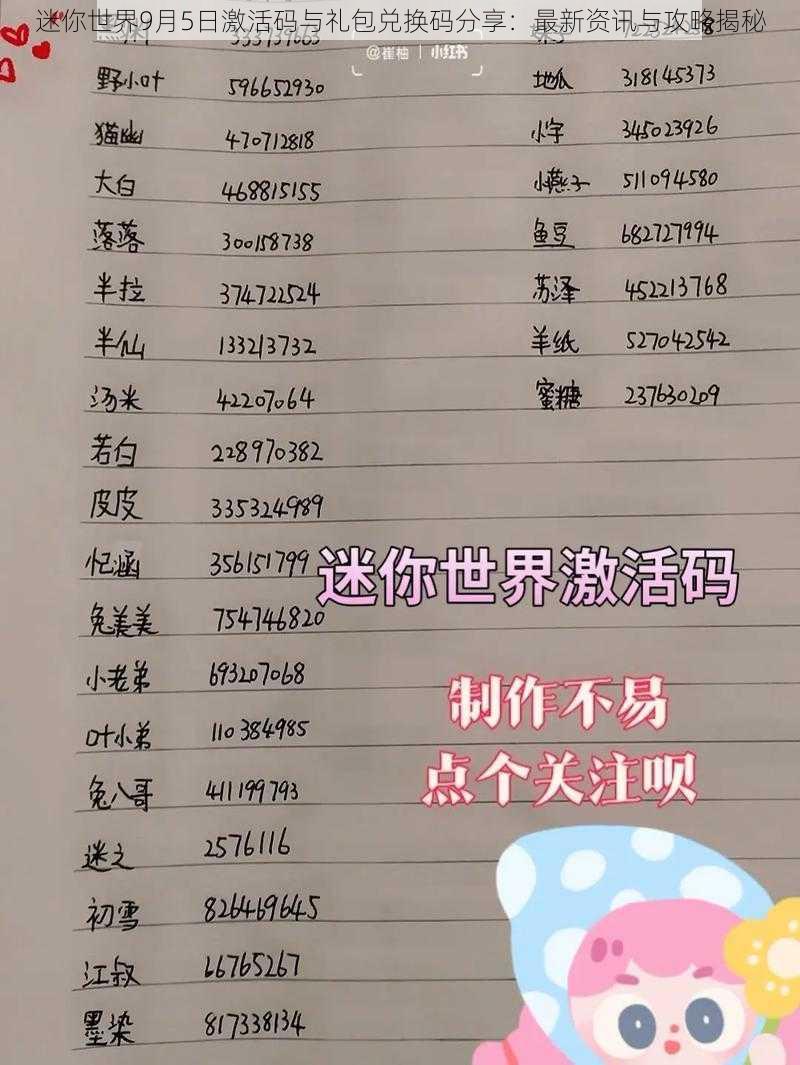 迷你世界9月5日激活码与礼包兑换码分享：最新资讯与攻略揭秘
@崔柚 | 小红书
野小叶 596652930
猫幽 470712818
大白 468815155
落落 300158738
半拉 374722524
半仙 133213732
汤米 42207064
若白 228970382
皮皮 335324989
忆涵 356151799
兔美美 754746820
小老弟 693207068
叶小弟 110384985
兔八哥 411199793
迷之 2576116
初雪 826469645
江叔 66765267
墨染 817338134
地瓜 318145373
小字 345023926
小燕子 511094580
鱼豆 682727994
苏泽 452213768
羊纸 527042542
蜜糖 237630209
迷你世界激活码
制作不易
点个关注呗